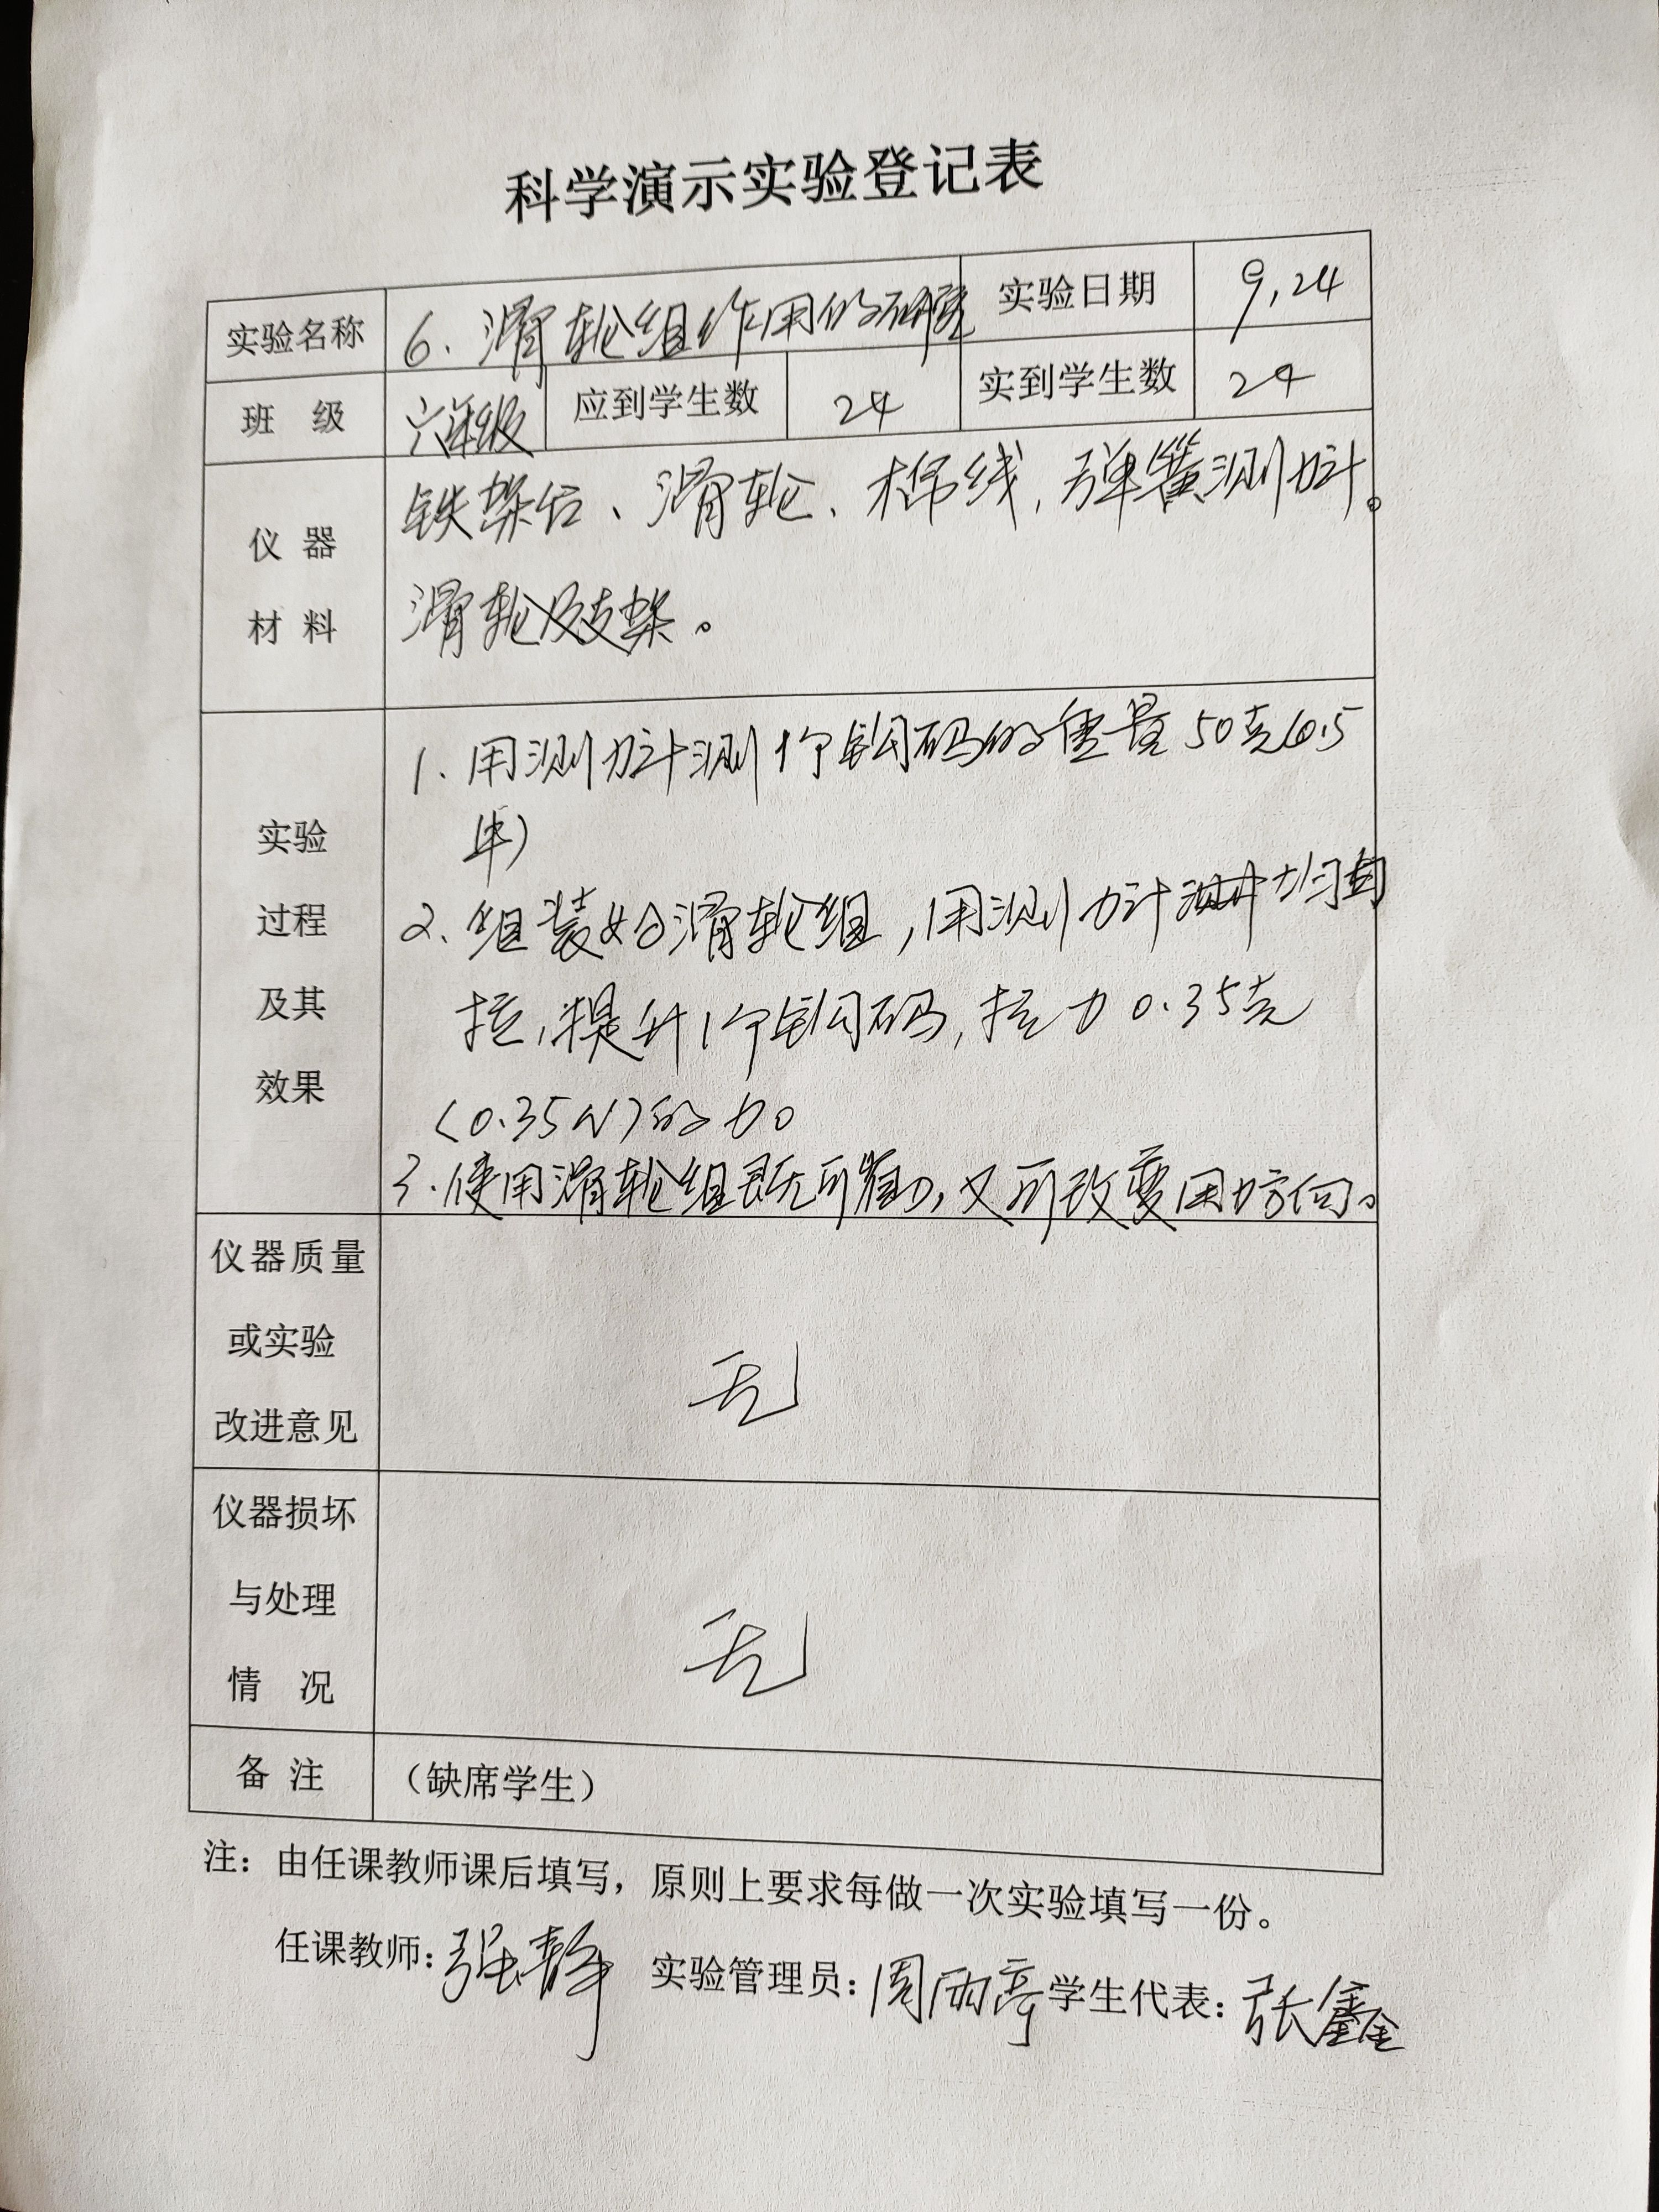 科学演示实验登记表
实验名称 6. 滑轮组作用的研究 实验日期 9,24
班 级 六年级 应到学生数 24 实到学生数 24
仪 器
材 料
铁架台、滑轮、棉线,弹簧测力计。
滑轮及支架。
实验
过程
及其
效果
1. 用测力计测1个钩码的重量50克(0.5
牛)
2. 组装好滑轮组,用测力计 匀
拉,提升1个钩码,拉力0.35克
(0.35N)的力。
3.使用滑轮组既可省力,又可改变用力方向。
仪器质量
或实验
改进意见
无
仪器损坏
与处理
情 况
无
备 注 (缺席学生)
注:由任课教师课后填写,原则上要求每做一次实验填写一份。
任课教师:强静 实验管理员:周雨亭 学生代表:张鑫